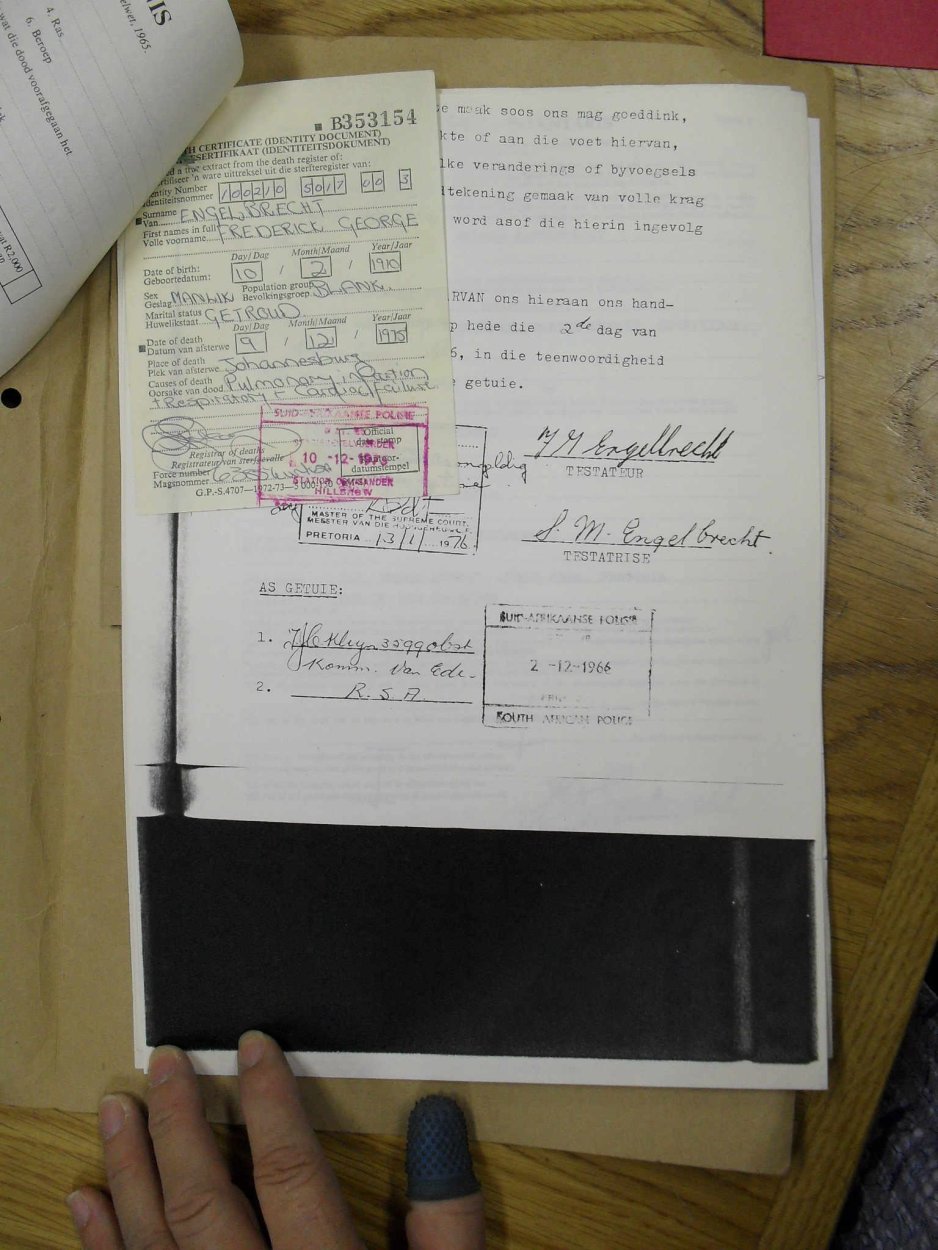 NIS
elwet, 1965.
4. Ras
6. Beroep
wat die dood voorafgegaan het
wat R2,000
B353154
TH CERTIFICATE (IDENTITY DOCUMENT)
SERTIFIKAAT (IDENTITEITSDOKUMENT)
d a true extract from the death register of:
ertifiseer 'n ware uittreksel uit die sterfteregister van:
Identity Number
Identiteitsnommer 100210 5017 00 3
Surname
Van ENGELBRECHT
First names in full
Volle voorname FREDERICK GEORGE
Day/Dag Month/Maand Year/Jaar
Date of birth:
Geboortedatum: 10 / 2 / 1910
Sex Population group
Geslag MANLIK Bevolkingsgroep BLANK
Marital status
Huwelikstaat GETROUD
Day/Dag Month/Maand Year/Jaar
Date of death
Datum van afsterwe 9 / 12 / 1975
Place of death
Plek van afsterwe Johannesburg
Causes of death
Oorsake van dood Pulmonary infarction
+ Respiratory + Cardiac failure
SUID-AFRIKAANSE POLISIE
Official
date stamp
10 -12- 1975
datumstempel
STATION COMMANDER
HILLBROW
Registrar of deaths
Registrateur van sterfgevalle
Force number
Magsnommer
G.P.-S.4707—1972-73—
e maak soos ons mag goeddink,
kte of aan die voet hiervan,
lke veranderings of byvoegsels
dtekening gemaak van volle krag
word asof die hierin ingevolg
RVAN ons hieraan ons hand-
p hede die 2de dag van
6, in die teenwoordigheid
e getuie.
Engelbrecht
TESTATEUR
MASTER OF THE SUPREME COURT
MEESTER VAN DIE HOOGGEREGSHOF
PRETORIA 13/1/1976
S. M. Engelbrecht.
TESTATRISE
AS GETUIE:
1.
Komm. van Ede.
2. R.S.A.
SUID-AFRIKAANSE POLISIE
2 -12-1966
SOUTH AFRICAN POLICE